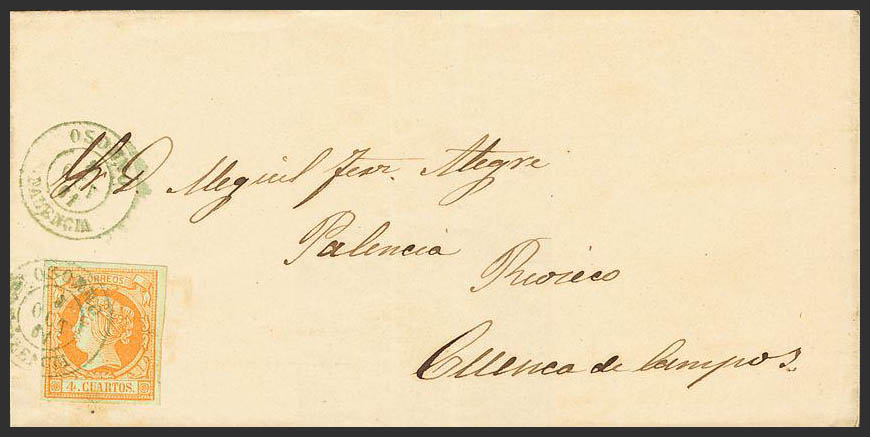 OSORNO
PALENCIA
Sr. D. Meguiel Fern. Alegre
Palencia
Rioseco
Cuenca de Campos
OSORNO
CORREOS
4 CUARTOS.